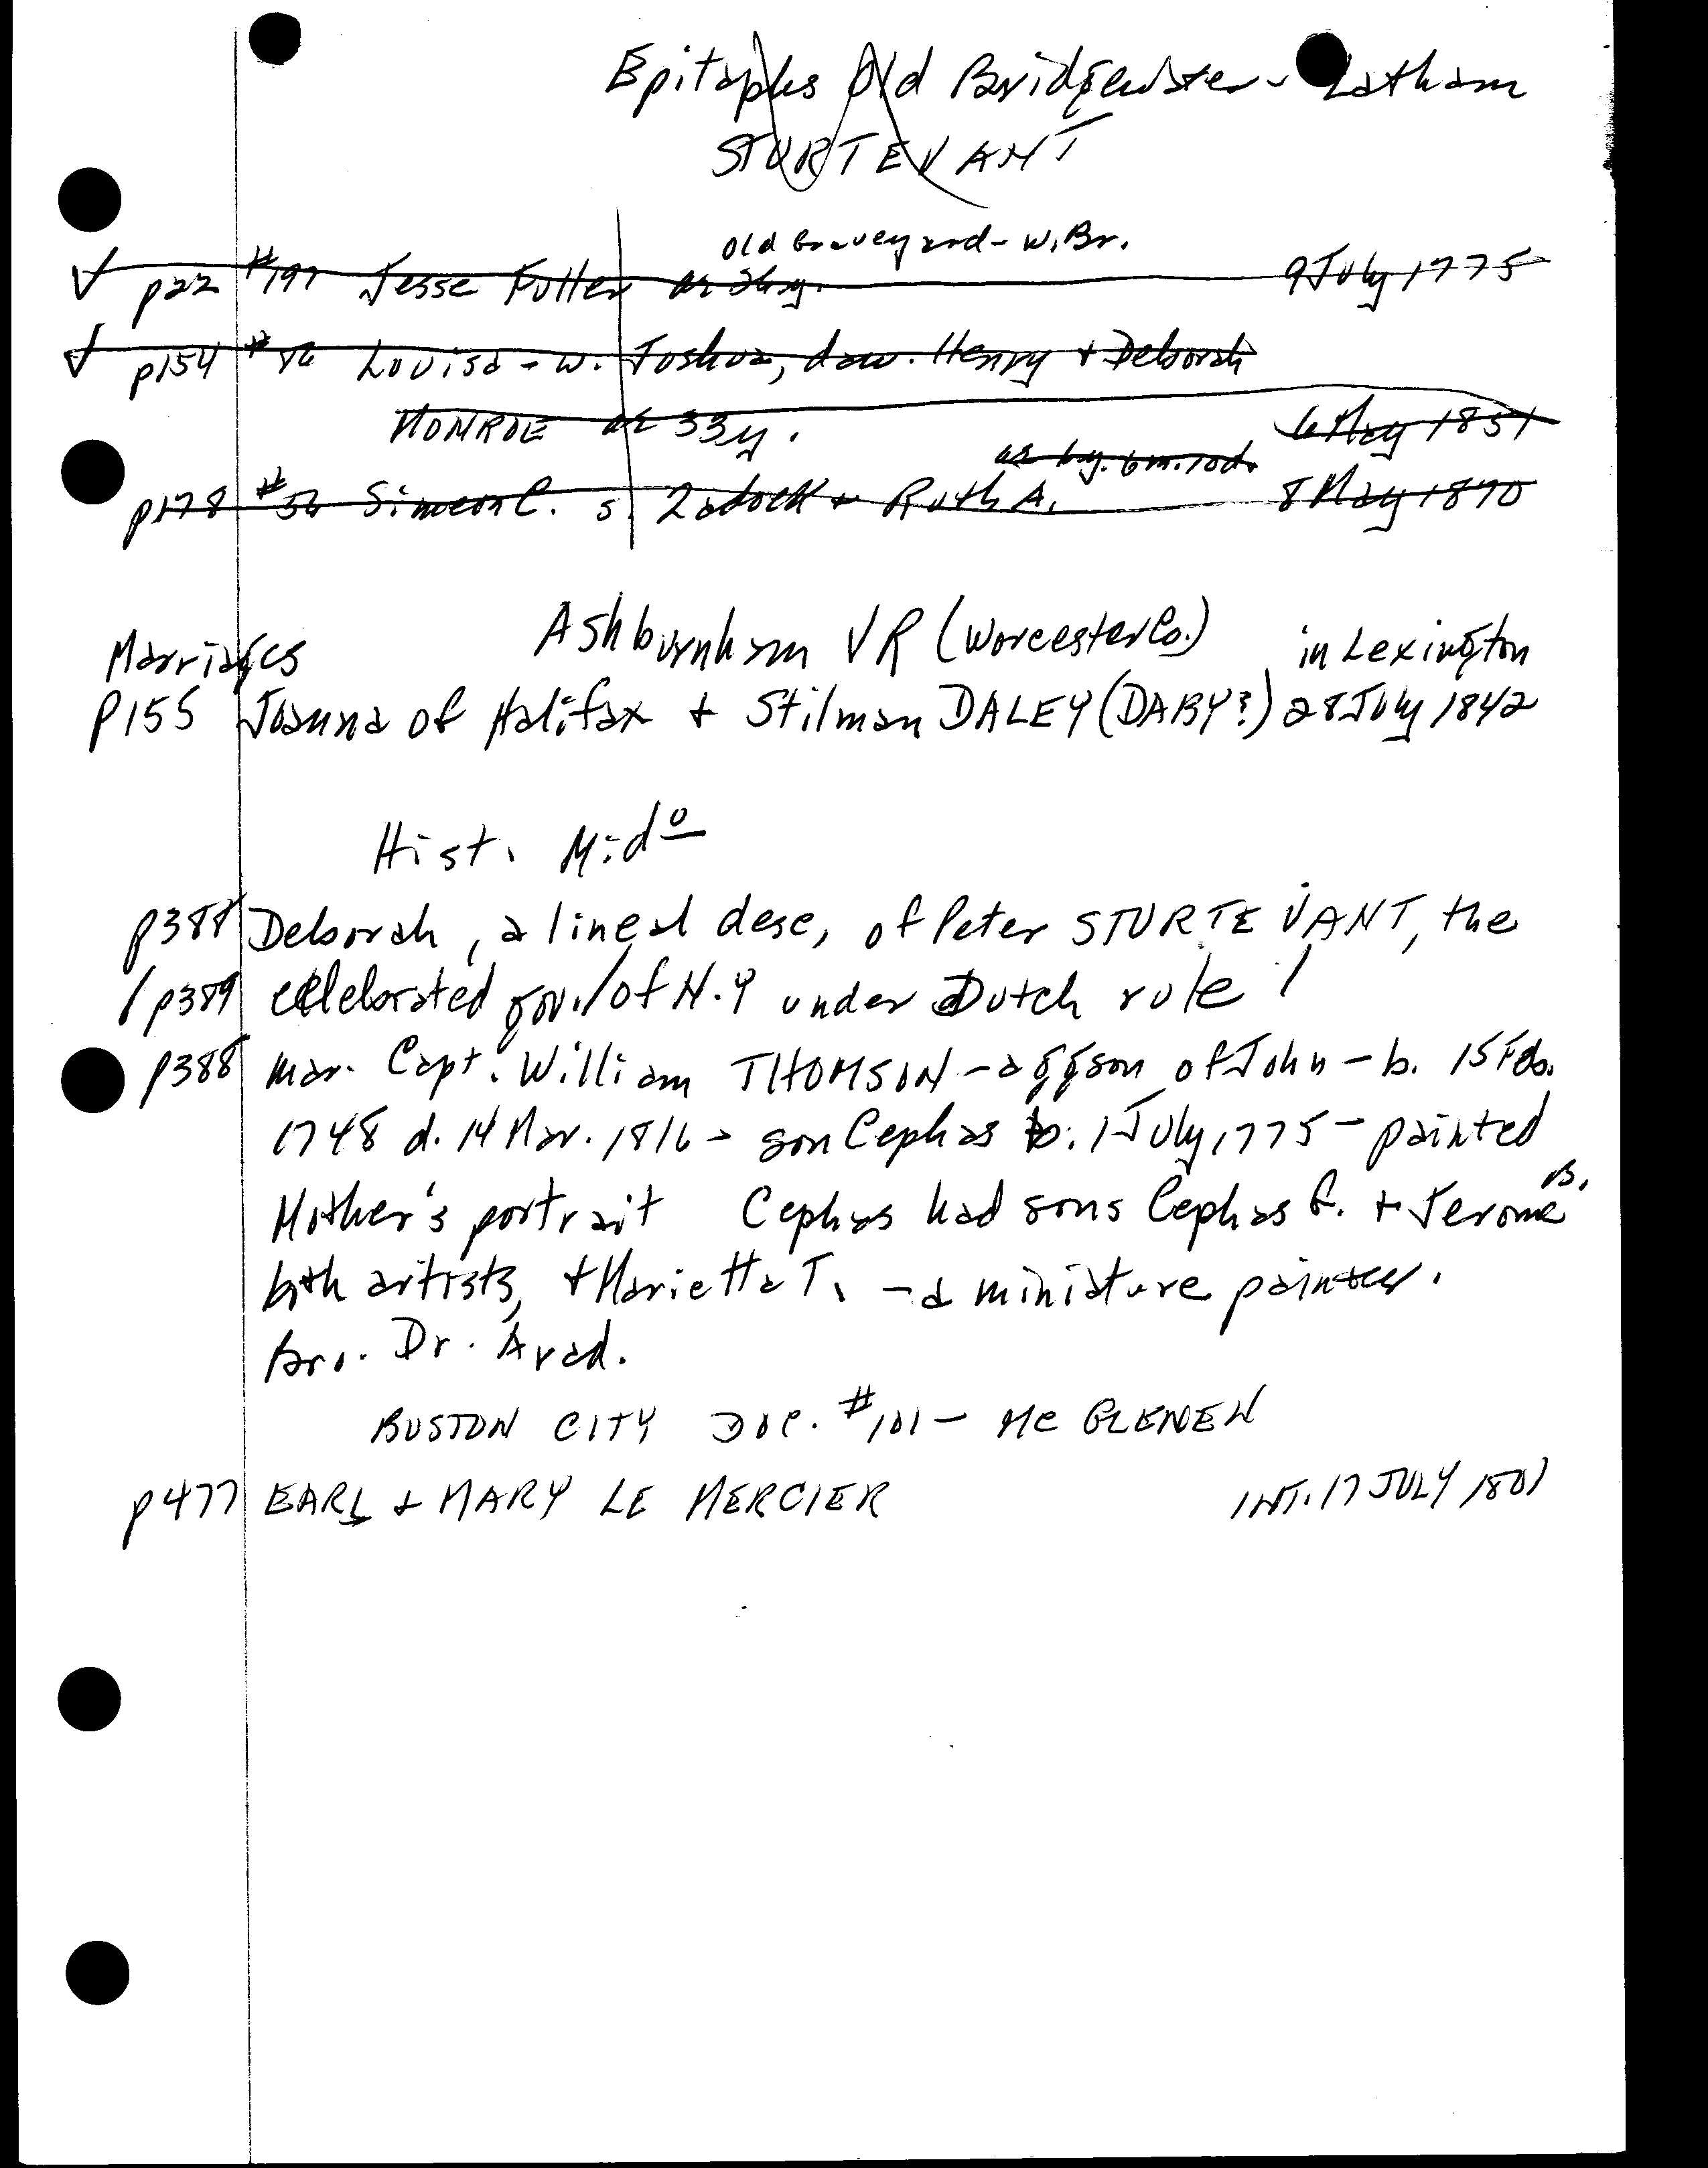 Epitaphs Old Bridgewater - Latham
STURTEVANT
Old Graveyard - W. Br.
p22 #197 Jesse Fuller ae 26y. 9 July 1775
p154 # Louisa - w. Joshua, dau. Henry + Deborah
MONROE ae 33y. 6 May 1851
ae 6y. 6m. 10d.
p178 #56 Simeon C. s. Zadock + Ruth A. 8 May 1870
Ashburnham VR (Worcester Co.) in Lexington
Marriages
P155 Joanna of Halifax + Stilman DALEY (DABY?) 28 July 1842
Hist. Mido
p388 Deborah, a lineal desc, of Peter STURTEVANT, the
p389 celebrated gov. of N.Y under Dutch rule!
p388 mar. Capt. William THOMSON - a ggson of John - b. 15 Feb.
1748 d. 14 Mar. 1816 - son Cephas b. 1 July, 1775 - painted
Mother's portrait Cephas had sons Cephas G. + Jerome B.
both artists, + Marietta T. - a miniature painter.
bro. Dr. Arad.
BOSTON CITY DOC. #101 - MC GLENEN
p477 EARL + MARY LE MERCIER INT. 17 JULY 1801